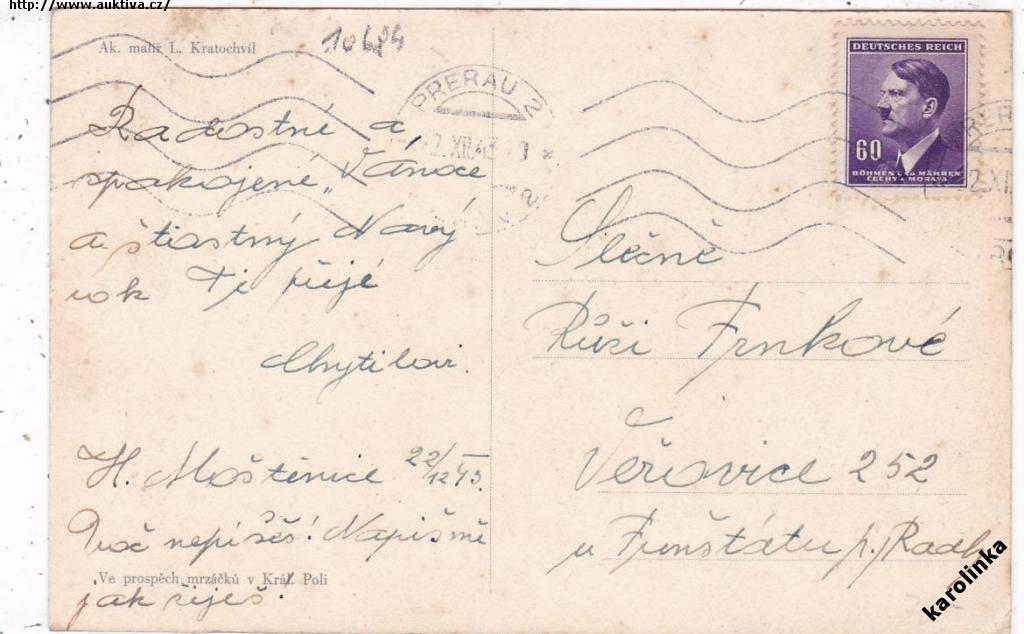 http://www.auktiva.cz/
Ak. malíř L. Kratochvíl
10684
PRERAU 2
DEUTSCHES REICH
60
BÖHMEN UND MÄHREN
ČECHY A MORAVA
Radostné a
spokojené Vánoce
a šťastný Nový
rok Ti přejí
Chytilovi.
H. Moštěnice 22/12 43.
Proč nepíšeš! Napiš mě
Ve prospěch mrzáčků v Král. Poli
jak žiješ!
Slečně
Růži Frnkové
Veřovice 252
u Frenštátu p. Radh.
karolinka